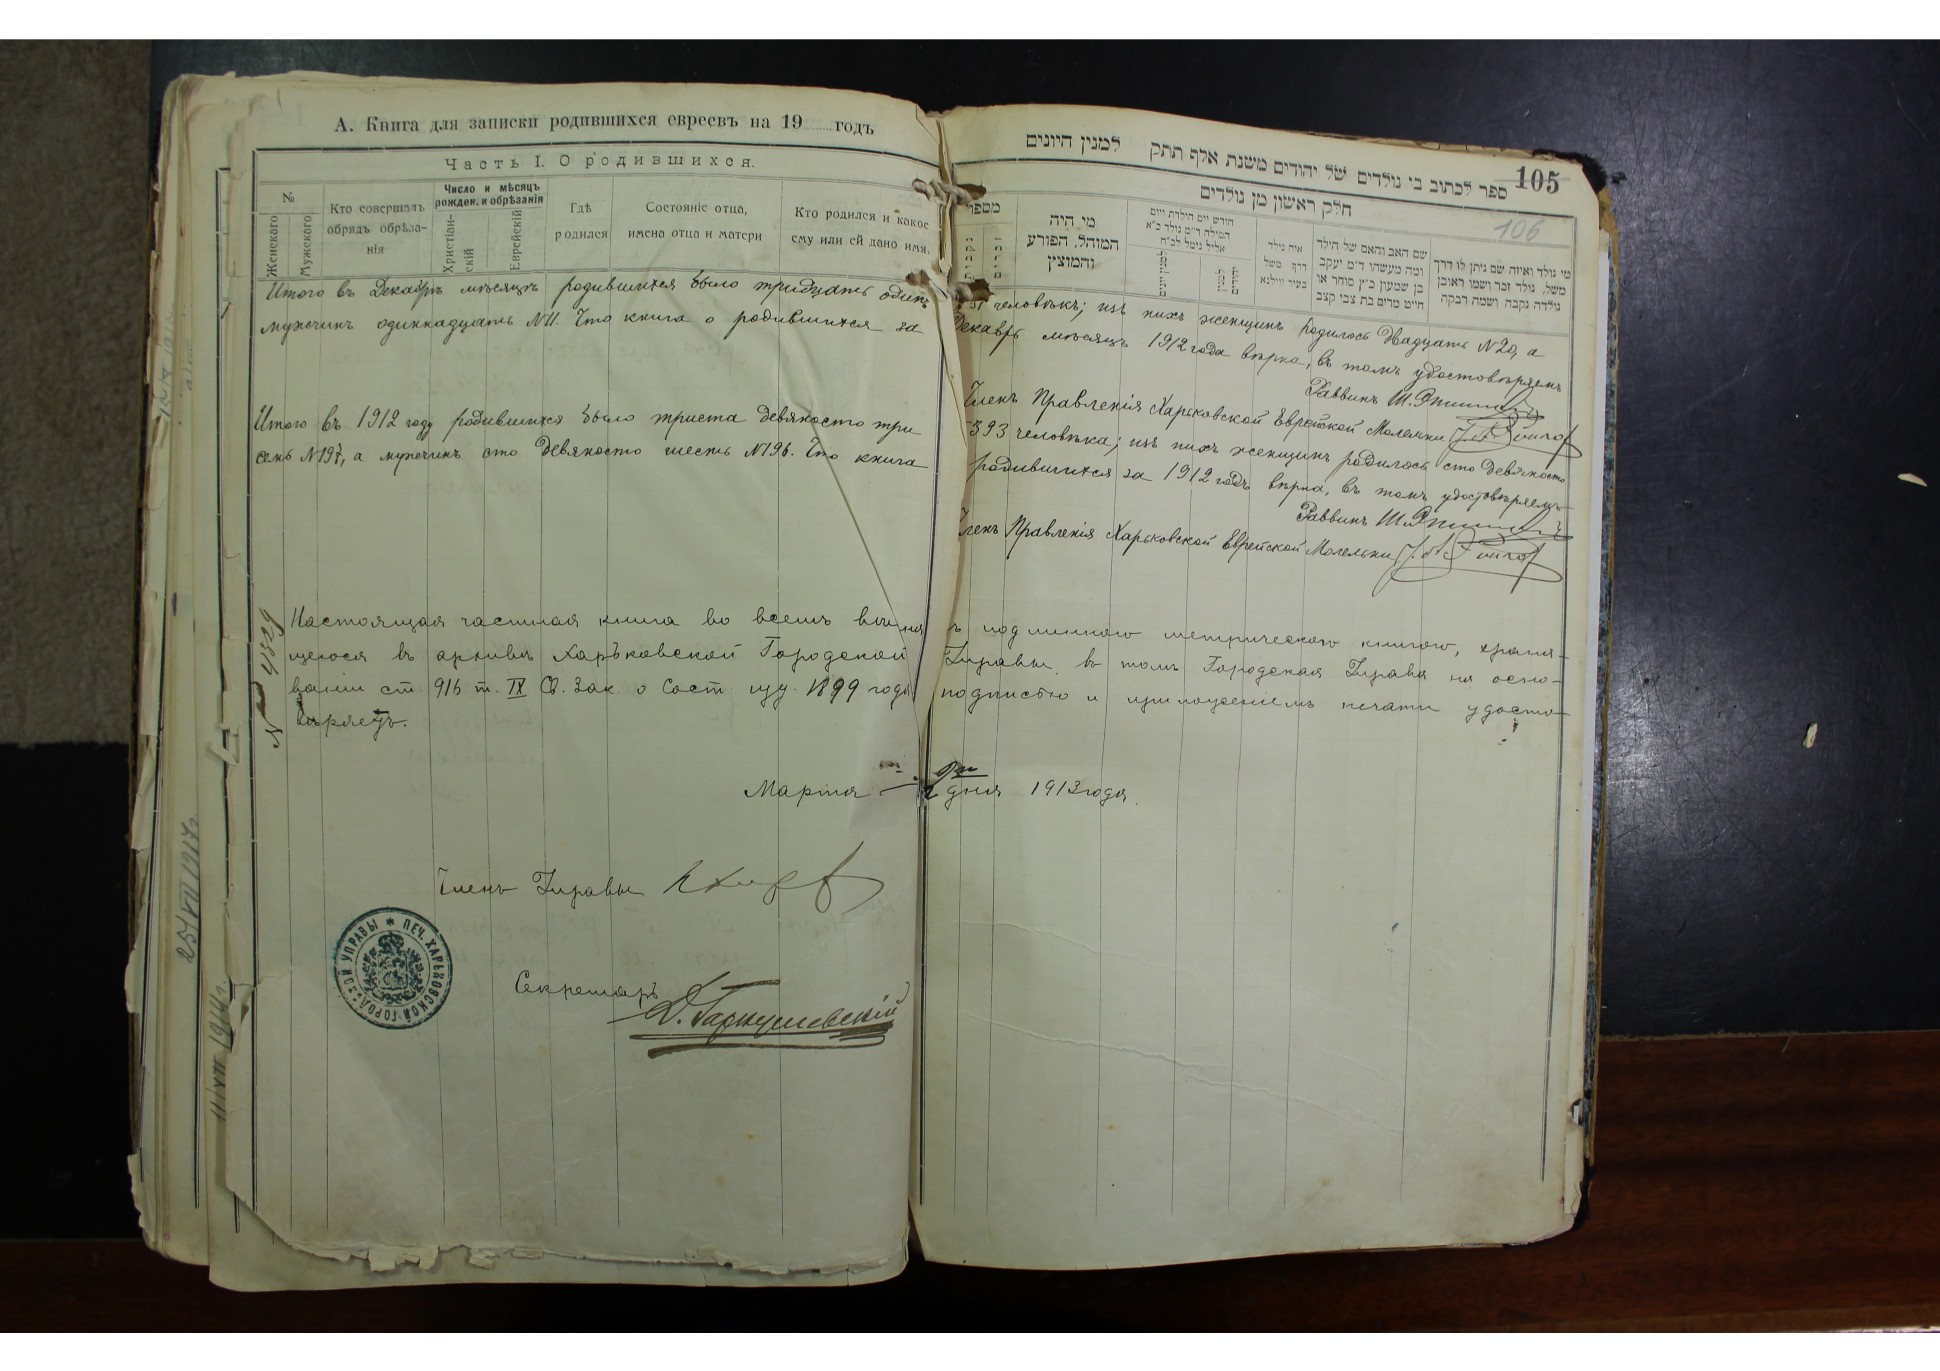 А. Книга для записки родившихся евреевъ на 19 годъ
Часть I. О родившихся.
№
Женскаго
Мужскаго
Кто совершалъ обрядъ обрѣза-
нія
Число и мѣсяцъ рожден. и обрѣзанія
Христіан-
скій
Еврейскій
Гдѣ родился
Состояніе отца, имена отца и матери
Кто родился и какое ему или ей дано имя.
ספר לכתוב בי נולדים של יהודים משנת אלף תתק למנין היונים
105
106
חלק ראשון מן נולדים
מספר
נקבות
זכרים
מי היה
המוהל, הפורע
והמוצץ
חודש יום הולדת ויום
המילה ד"מ נולד כ"א
אליל נימל לכ"ח
למנין יונים
איה נולד
דרך משל
בעיר ווילנא
שם האב והאם של הילד
ומה מעשהו ד"מ יעקב
בן שמעון כ"ץ סוחר או
חייט מרים בת צבי קצב
מי נולד ואיזה שם ניתן לו דרך
משל, נולד זכר ושמו ראובן
נולדה נקבה ושמה רבקה
Итого въ Декабрѣ мѣсяцѣ родившихся было тридцать одинъ 31 человѣкъ; изъ нихъ женщинъ родилось двадцать №20, а
мужчинъ одиннадцать №11. Что книга о родившихся за Декабрь мѣсяцъ 1912 года вѣрна, въ томъ удостовѣряемъ
Раввинъ Ш.
Членъ Правленія Харьковской Еврейской Молельни
Итого въ 1912 году родившихся было триста девяносто три 393 человѣка; изъ нихъ женщинъ родилось сто девяносто
семь №197, а мужчинъ сто девяносто шесть №196. Что книга родившихся за 1912 годъ вѣрна, въ томъ удостовѣряемъ
Раввинъ Ш.
Членъ Правленія Харьковской Еврейской Молельни
Настоящая частная книга во всемъ съ подлинною метрическою книгою, храня-
щеюся въ архивѣ Харьковской Городской Управы, въ томъ Городская Управа на осно-
ваніи ст. 915 т. IX Св. Зак. о Сост. изд. 1899 года подписью и приложеніемъ печати удосто-
вѣряетъ.
Марта дня 1913 года.
Членъ Управы
Секретарь
Д. Гаркушевскій
ПЕЧ. ХАРЬКОВСКОЙ ГОРОДСКОЙ УПРАВЫ
25/VIII 1917 г.
11/VIII 1914 г.